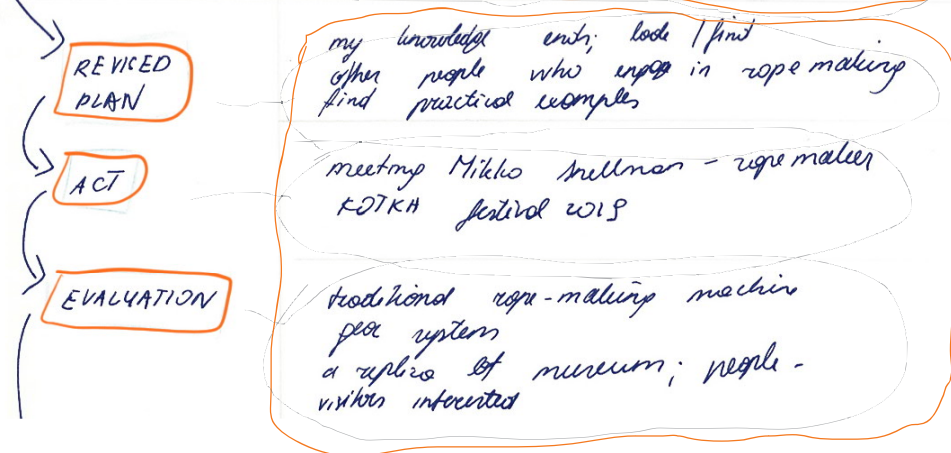 REVICED
PLAN
my knowledge ends; look / find
other people who engage in rope making
find practical examples
ACT
meeting Mikko Snellman - rope maker
KOTKA festival 2019
EVALUATION
traditional rope-making machine
gear system
a replica of museum; people -
visitors interested